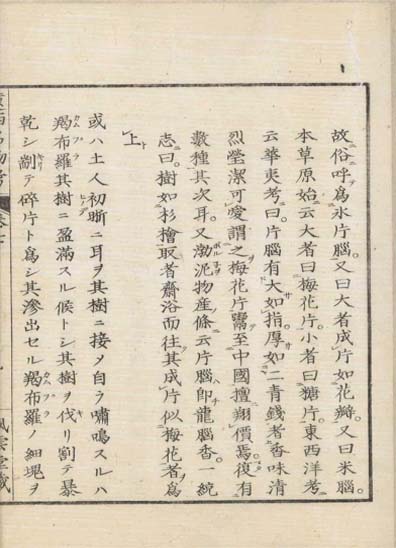 故俗呼爲氷片腦。又曰大者成片如花瓣。又曰米腦。
本草原始云大者曰梅花片。小者曰糖片。東西洋考
云華夷考曰。片腦有大如指厚如二青錢者香味清
烈瑩潔可愛謂之梅花片鬻至中國擅翔價焉。復有
數種其次耳。又渤泥物産條云片腦卽龍腦香。一統
志曰。樹如杉檜取者齋浴而往其成片似梅花者爲
上
或ハ土人初晰ニ耳ヲ其樹ニ接メ自ラ嘯鳴スルハ
羯布羅其樹ニ盈滿スル候トシ其樹ヲ伐リ割テ暴
乾シ劘テ碎片ト爲シ其滲出セル羯布羅ノ細塊ヲ